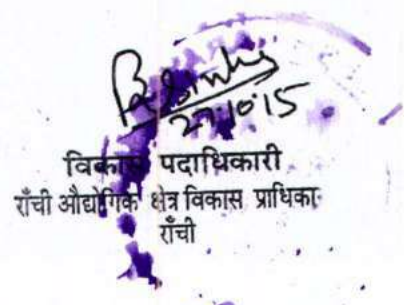 27.10.15
विकास पदाधिकारी
राँची औद्योगिक क्षेत्र विकास प्राधिका
राँची